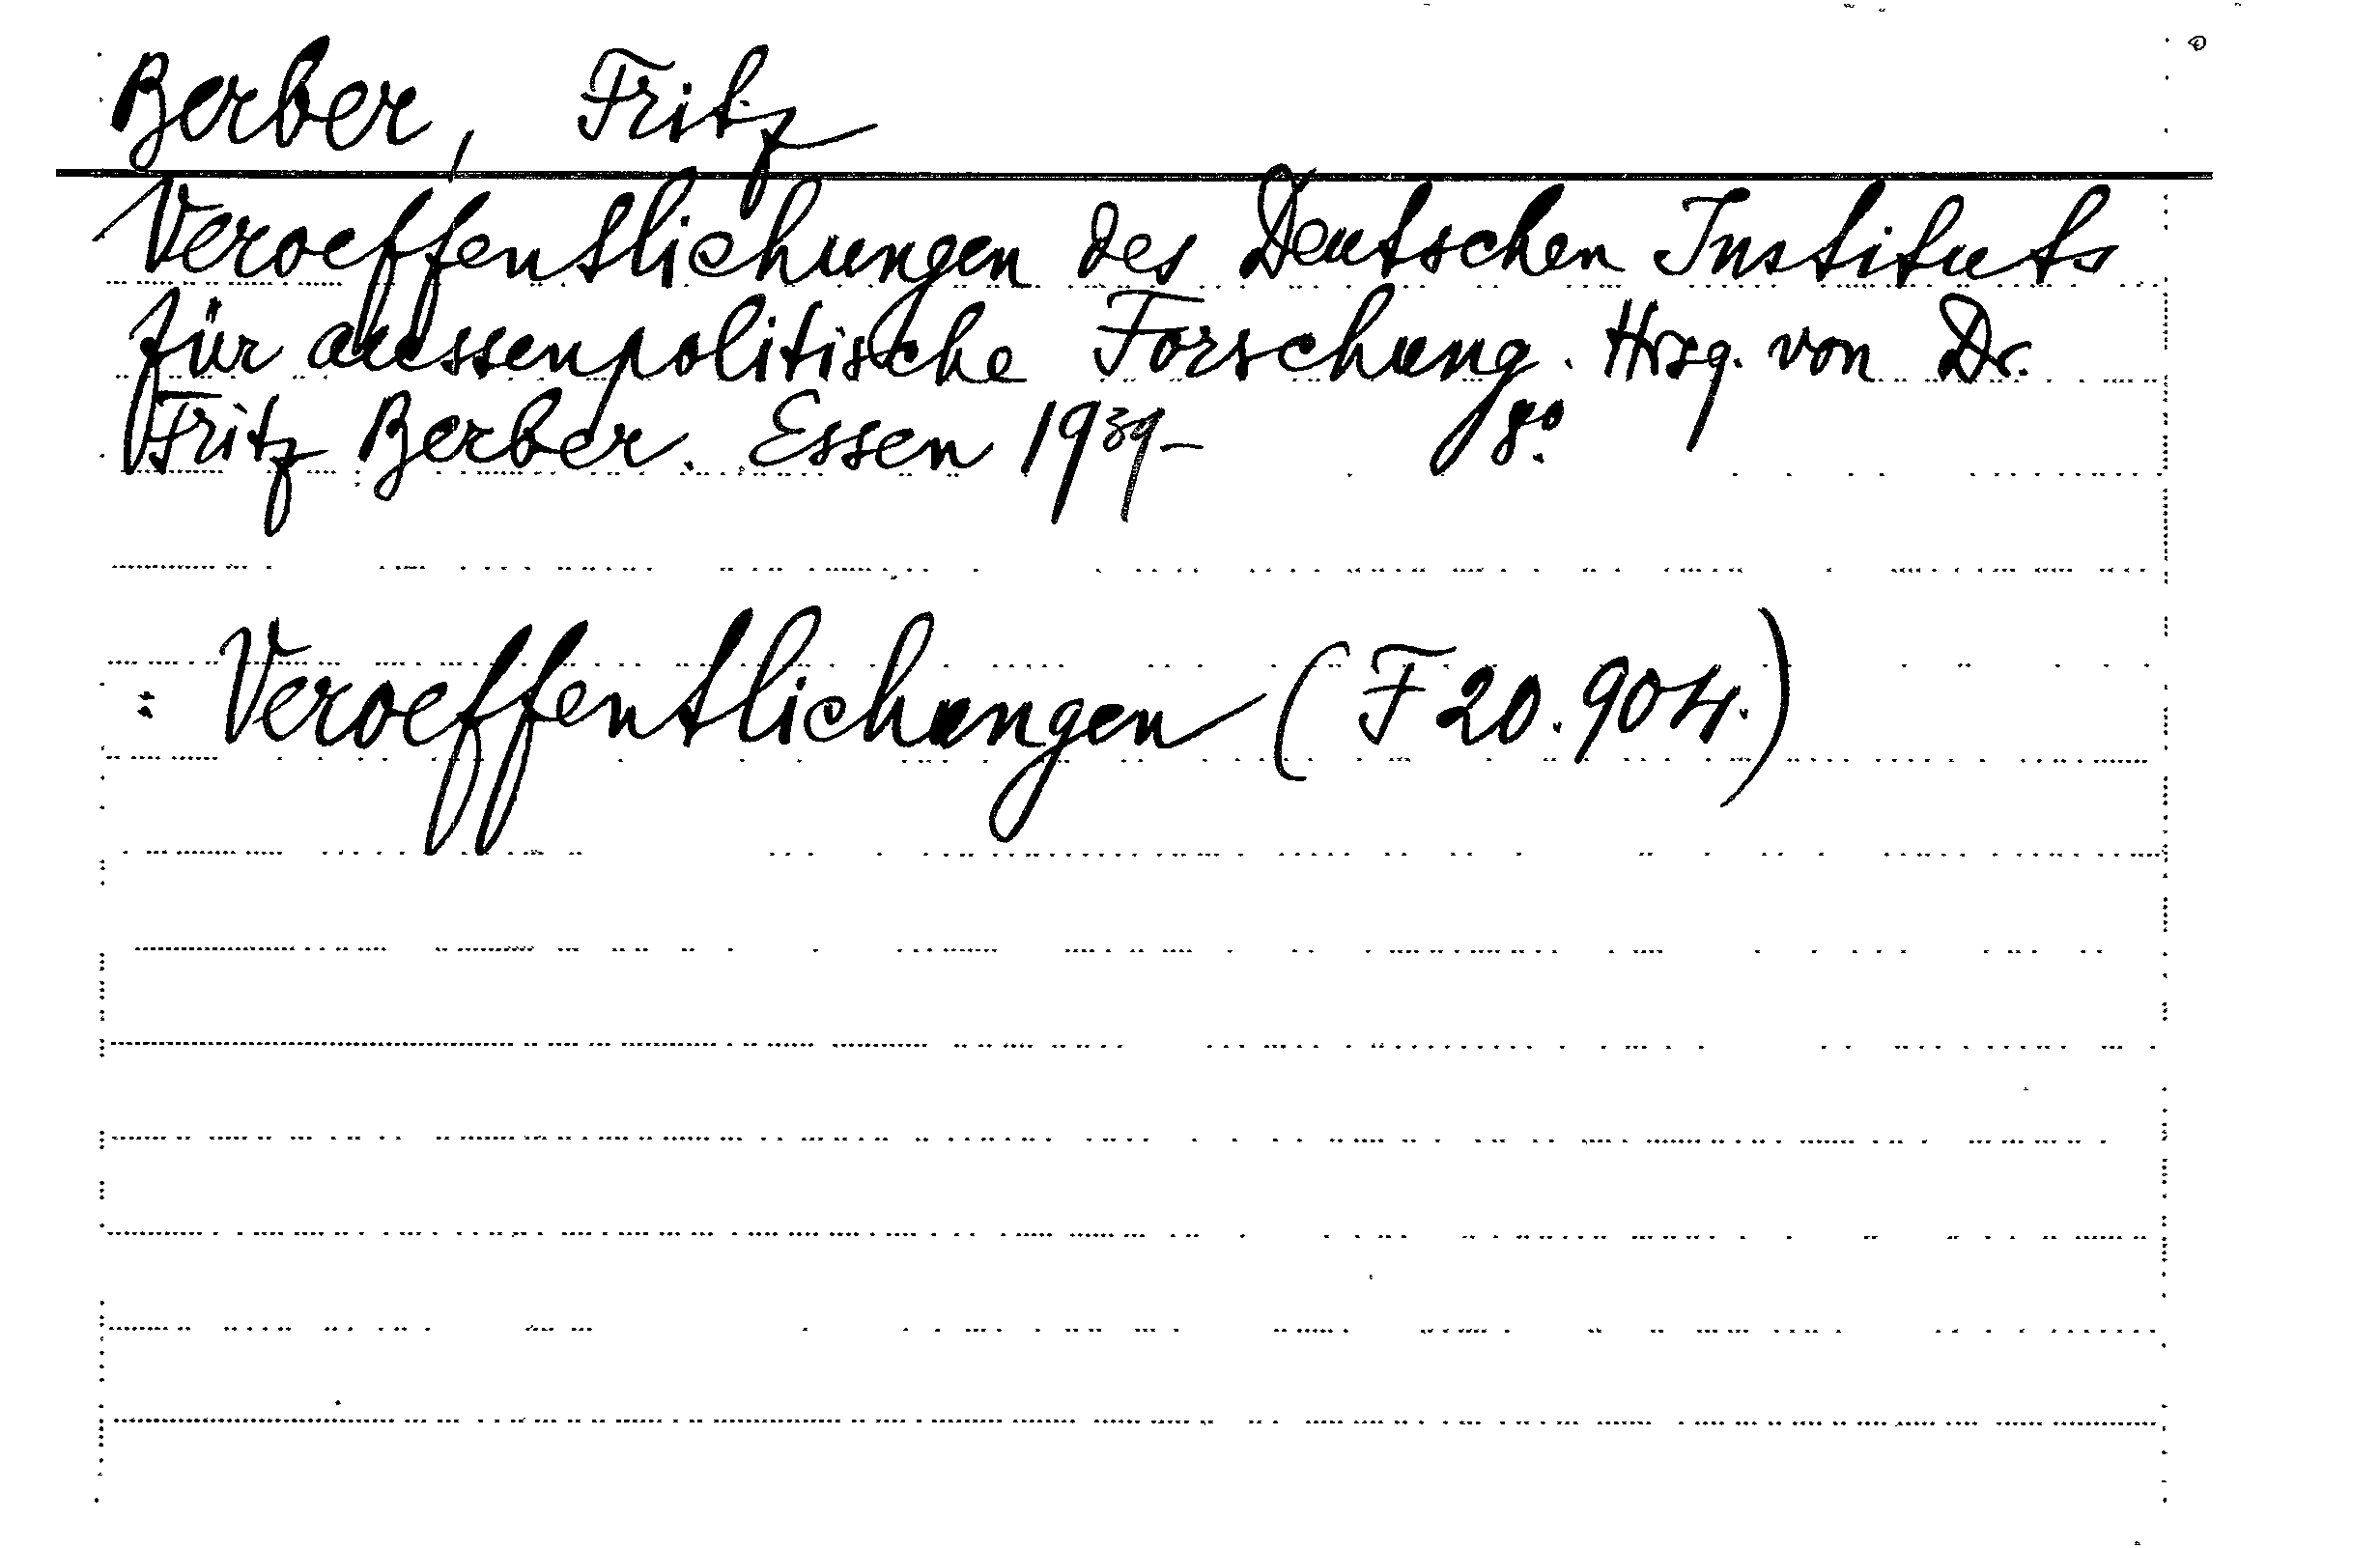 Berber, Fritz
Veroeffentlichungen des Deutschen Instituts
für aussenpolitische Forschung. Hrsg. von Dr.
Fritz Berber. Essen 1939- 8°.
: Veroeffentlichungen (F 20.904.)